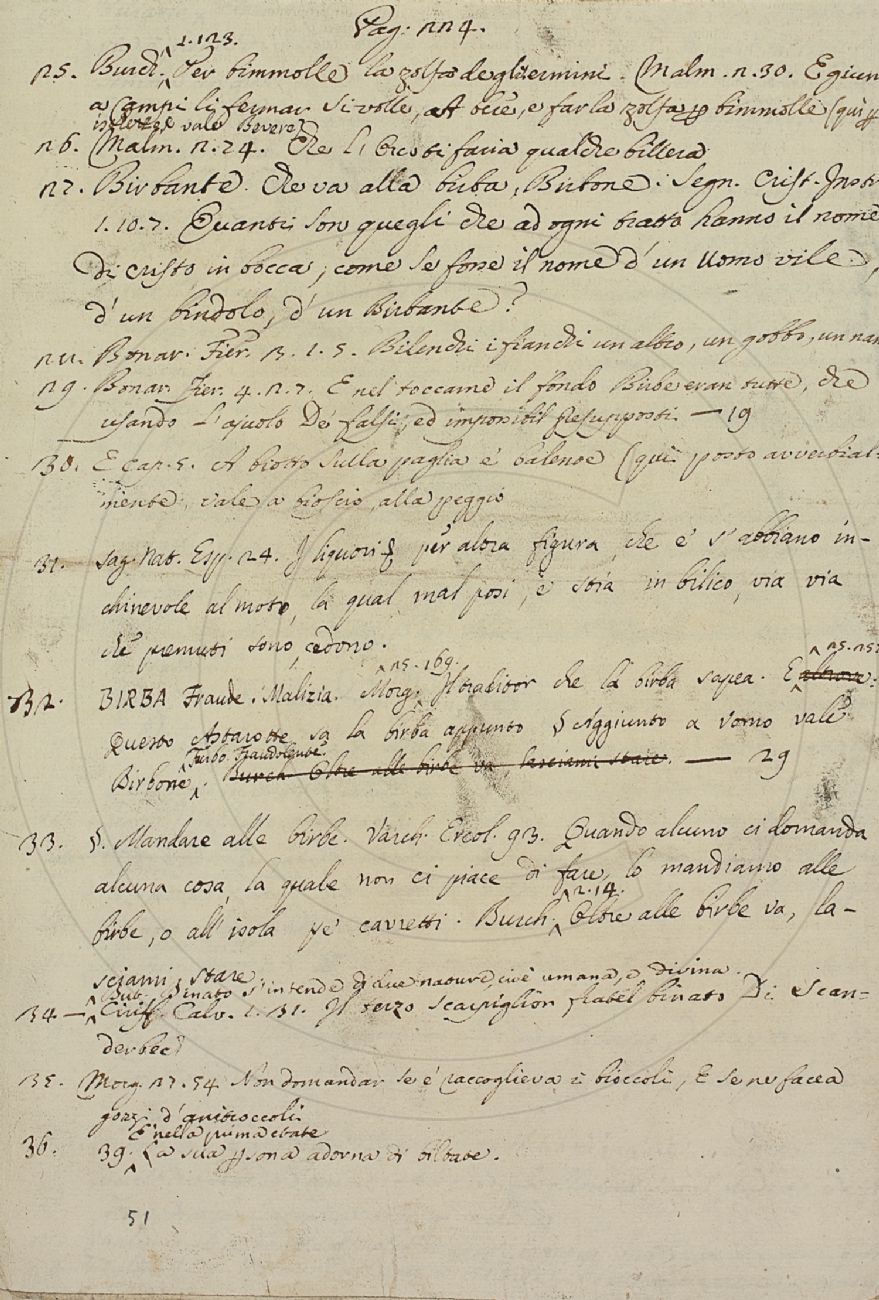 Pag. 224.
1. 123.
25. Burch. Per bimmolle la zolfa degli ermini. Malm. 2. 30. E giun
a Campi li fermar si volle, A bere, e far la zolfa per bimmolle (qui per
ischerzo vale Bevere)
26. Malm. 2. 24. Che li si faria qualche billera
27. Birbante. Che va alla birba, Birbone. Segn. Crist. Instr.
1. 10. 7. Quanti son quegli che ad ogni tratto hanno il nome
di cristo in bocca, come se fosse il nome d' un Uomo vile,
d' un bindolo, d' un Birbante?
28. Bonar. Fier. 3. 1. 5. Bilenchi i fianchi un altro, un gobbo, un nan
29. Bonar. Fier. 4. 2. 7. E nel toccarne il fondo Birbe eran tutte, che
usando l' aiuolo De' falsi, ed impossibil Presupposti. — 19
30. E cap. 5. A biotto sulla paglia e balenoe (qui posto avverbial-
mente, vale a bioscio, alla peggio
31. Sag. Nat. Esp. 24. I liquori per altra figura, che e' s' abbiano in-
chinevole al moto, la qual mal posi, e stia in bilico, via via
che premuti sono, cedono.
25. 169. 25. 25
32. BIRBA Fraude. Malizia. Morg. Il traditor che la birba sapea. E altrove.
Questo Astarotte sa la birba appunto § Aggiunto a vomo vale
Furbo Fraudolente.
Birbone. Burch. Oltre alle birbe va, lasciami stare. — 29
33. §. Mandare alle birbe. Varch. Ercol. 93. Quando alcuno ci domanda
alcuna cosa, la quale non ci piace di fare, lo mandiamo alle
2. 14.
birbe, o all' isola pe' cavretti. Burch. Oltre alle birbe va, la-
sciami stare.
Binato s' intende di due nature, cioè umana, e divina.
34. — Ciriff. Calv. 1. 31. Il terzo Scapiglion fratel binato Di Scan-
derbec
35. Morg. 27. 54 Non domandar se e' raccoglieva i bioccoli, E se ne facea
gozzi d' anitroccoli.
E nella prima etate
36. 39. La sua persona adorna di biltate.
51